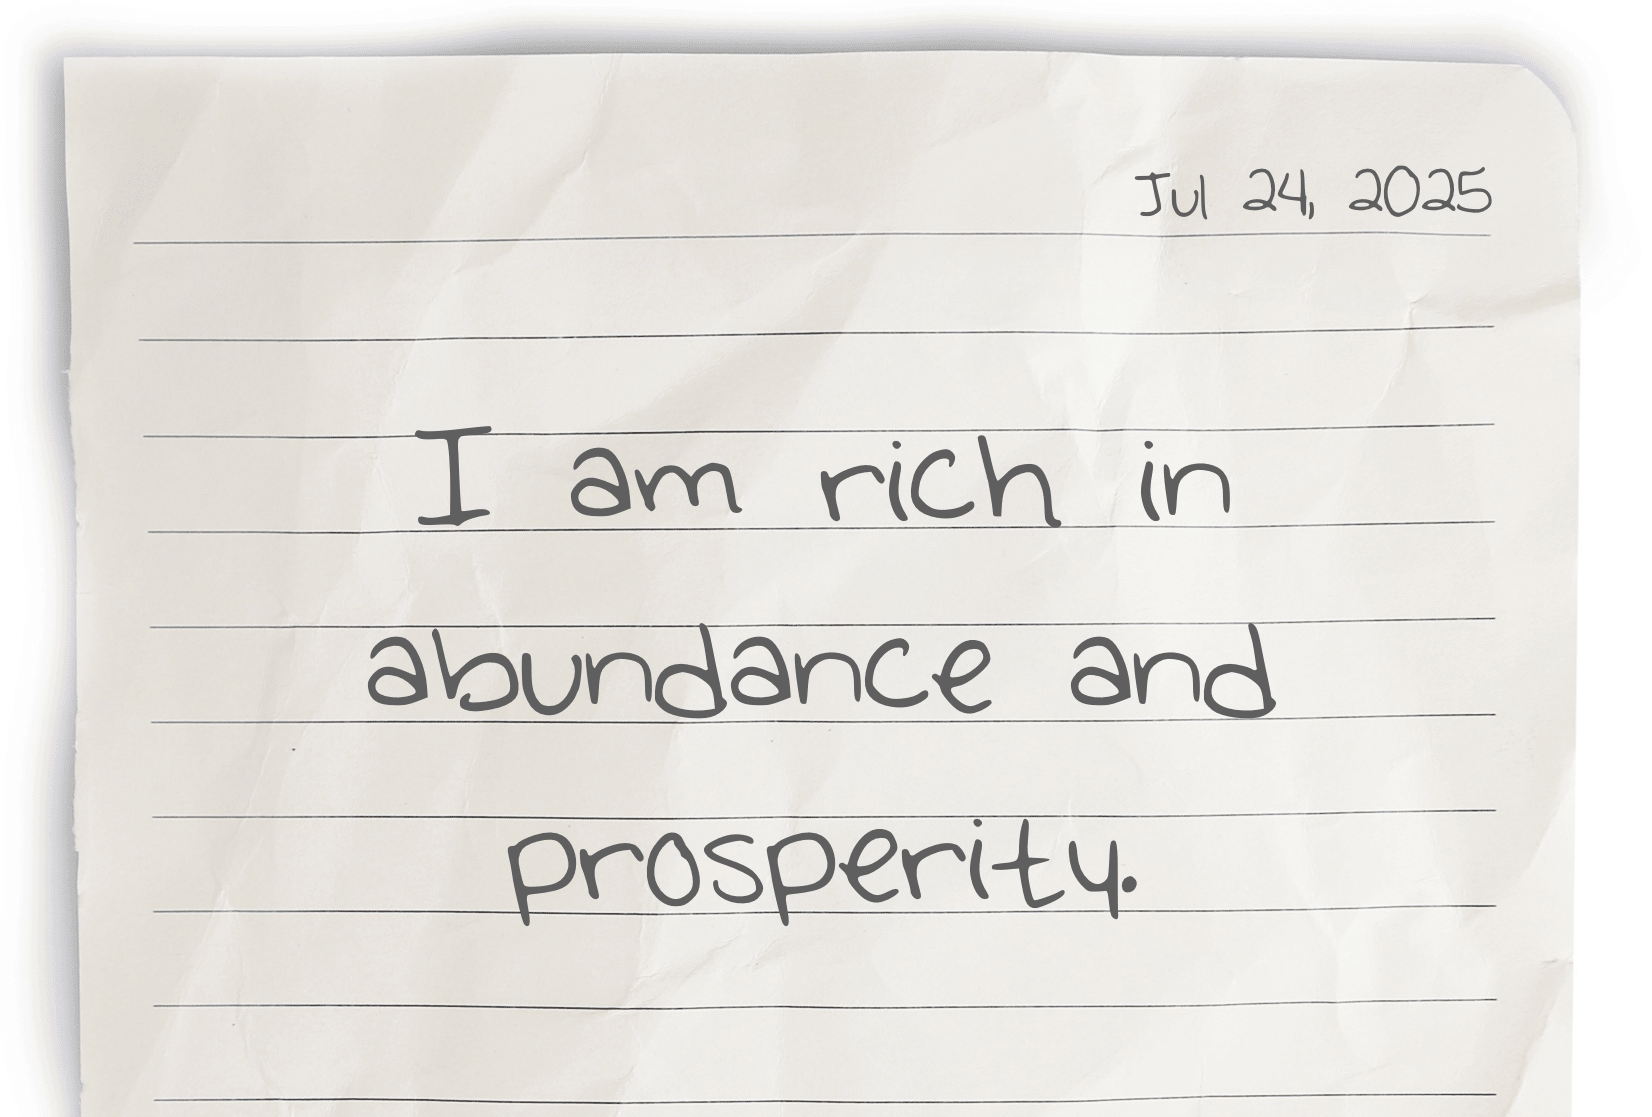 Jul 24, 2025
I am rich in
abundance and
prosperity.